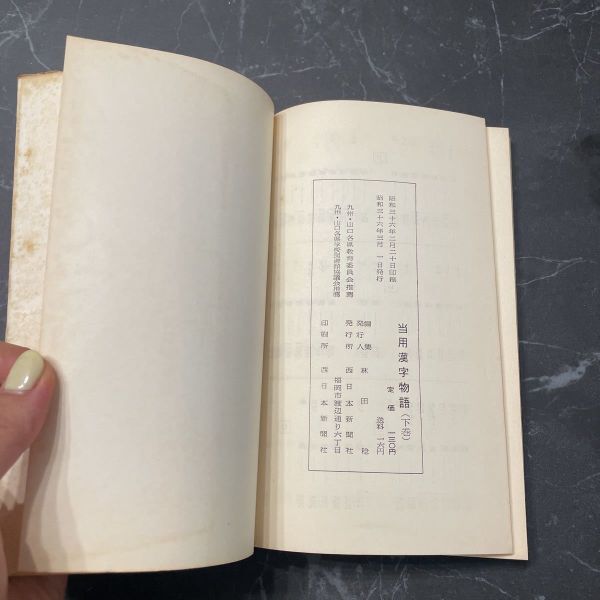 昭和三十六年二月二十日印刷
昭和三十六年三月一日発行
九州・山口各県教育委員会推薦
九州・山口各県学校図書館協議会推薦
当用漢字物語（下巻）
定価 一三〇円
送料 一六円
編集
発行人 林田稔
発行所 西日本新聞社
福岡市渡辺通り六丁目
印刷所 西日本新聞社